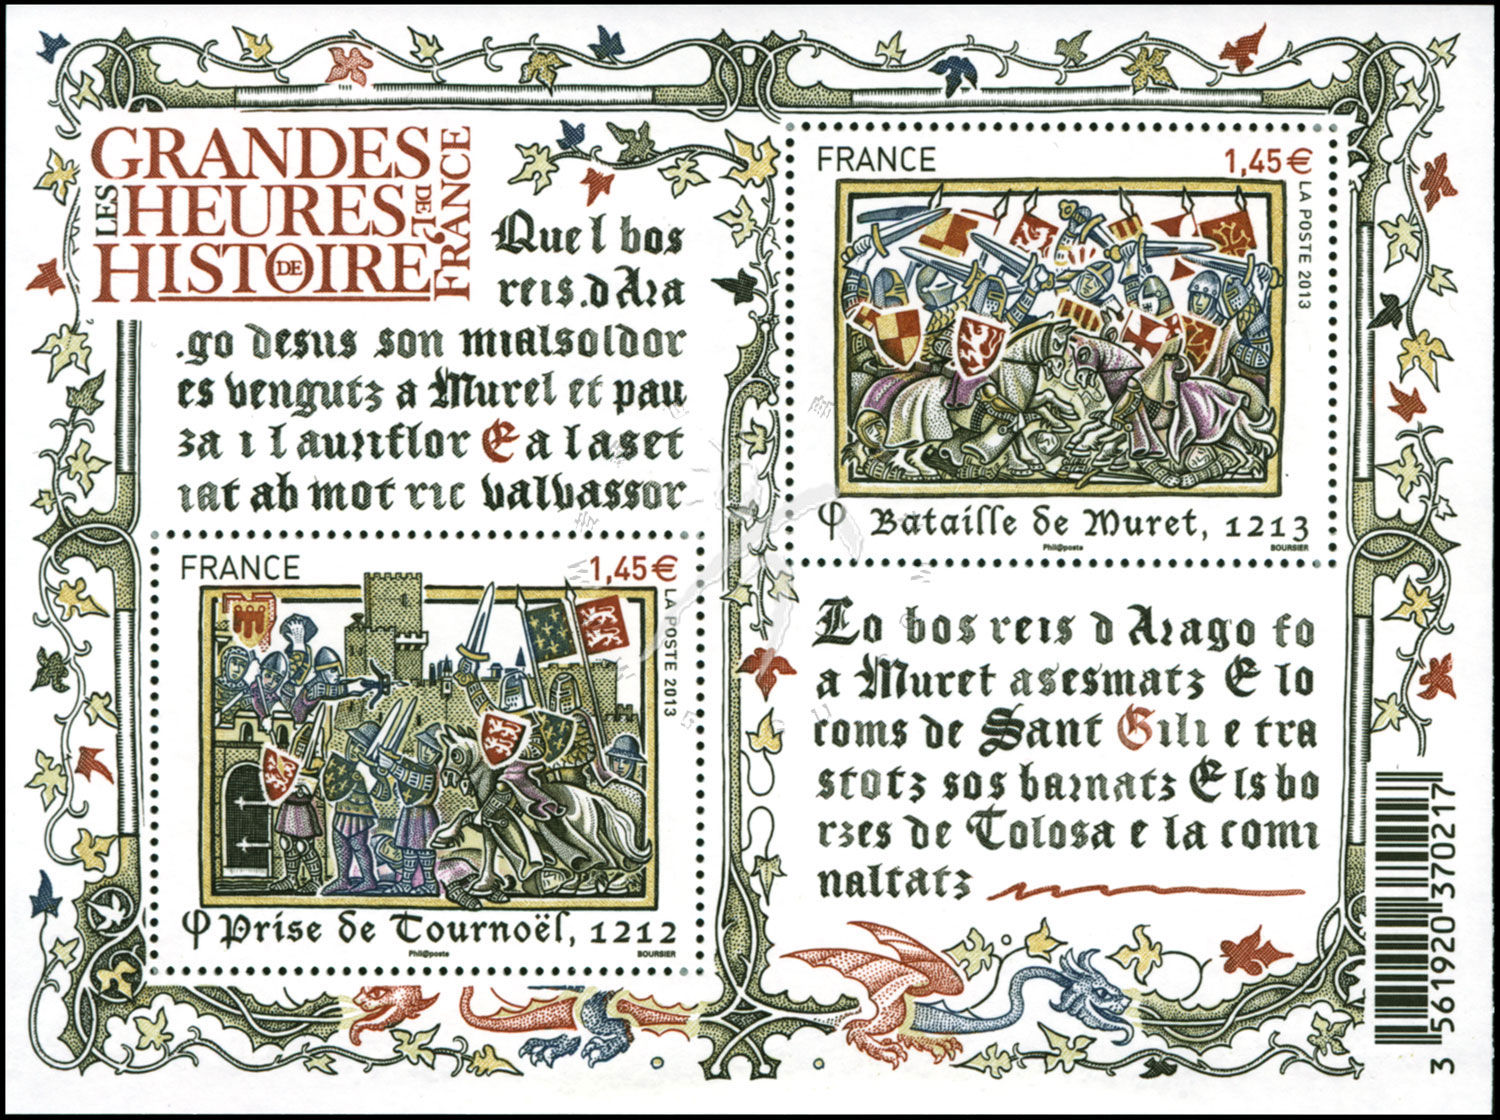 LES GRANDES
HEURES DE L'
HISTOIRE DE FRANCE
Quel bos
reis.d Ara
.go desus son mialsoldor
es vengutz a Murel et pau
za i l auriflor E a laset
iat ab mot ric valvassor
FRANCE 1,45€
LA POSTE 2013
φ Bataille de Muret, 1213
Phil@poste BOURSIER
FRANCE 1,45€
LA POSTE 2013
φ Prise de Tournoël, 1212
Phil@poste BOURSIER
Lo bos reis d Arago fo
a Muret asesmatz E lo
coms de Sant Gili e tra
stotz sos barnatz Els bo
rzes de Tolosa e la comi
naltatz
3 561920 370217